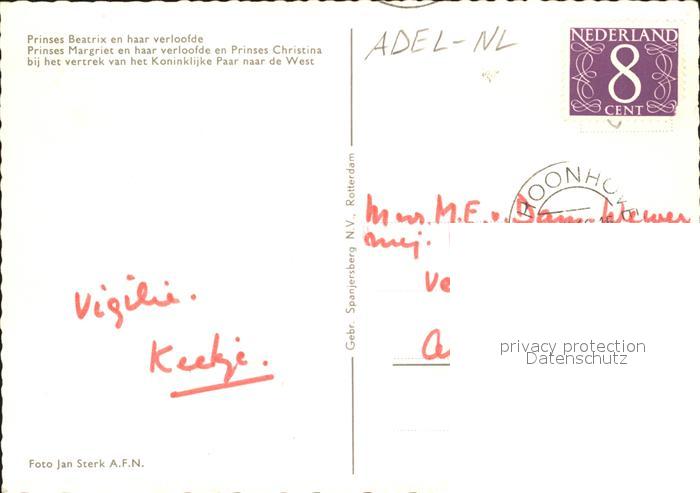 Prinses Beatrix en haar verloofde
Prinses Margriet en haar verloofde en Prinses Christina
bij het vertrek van het Koninklijke Paar naar de West
ADEL-NL
NEDERLAND
8
CENT
OONHOVE
M.E. v. Dam
mej.
Ve
Vigilie.
Keetje.
Gebr. Spanjersberg N.V., Rotterdam
privacy protection
Datenschutz
Foto Jan Sterk A.F.N.